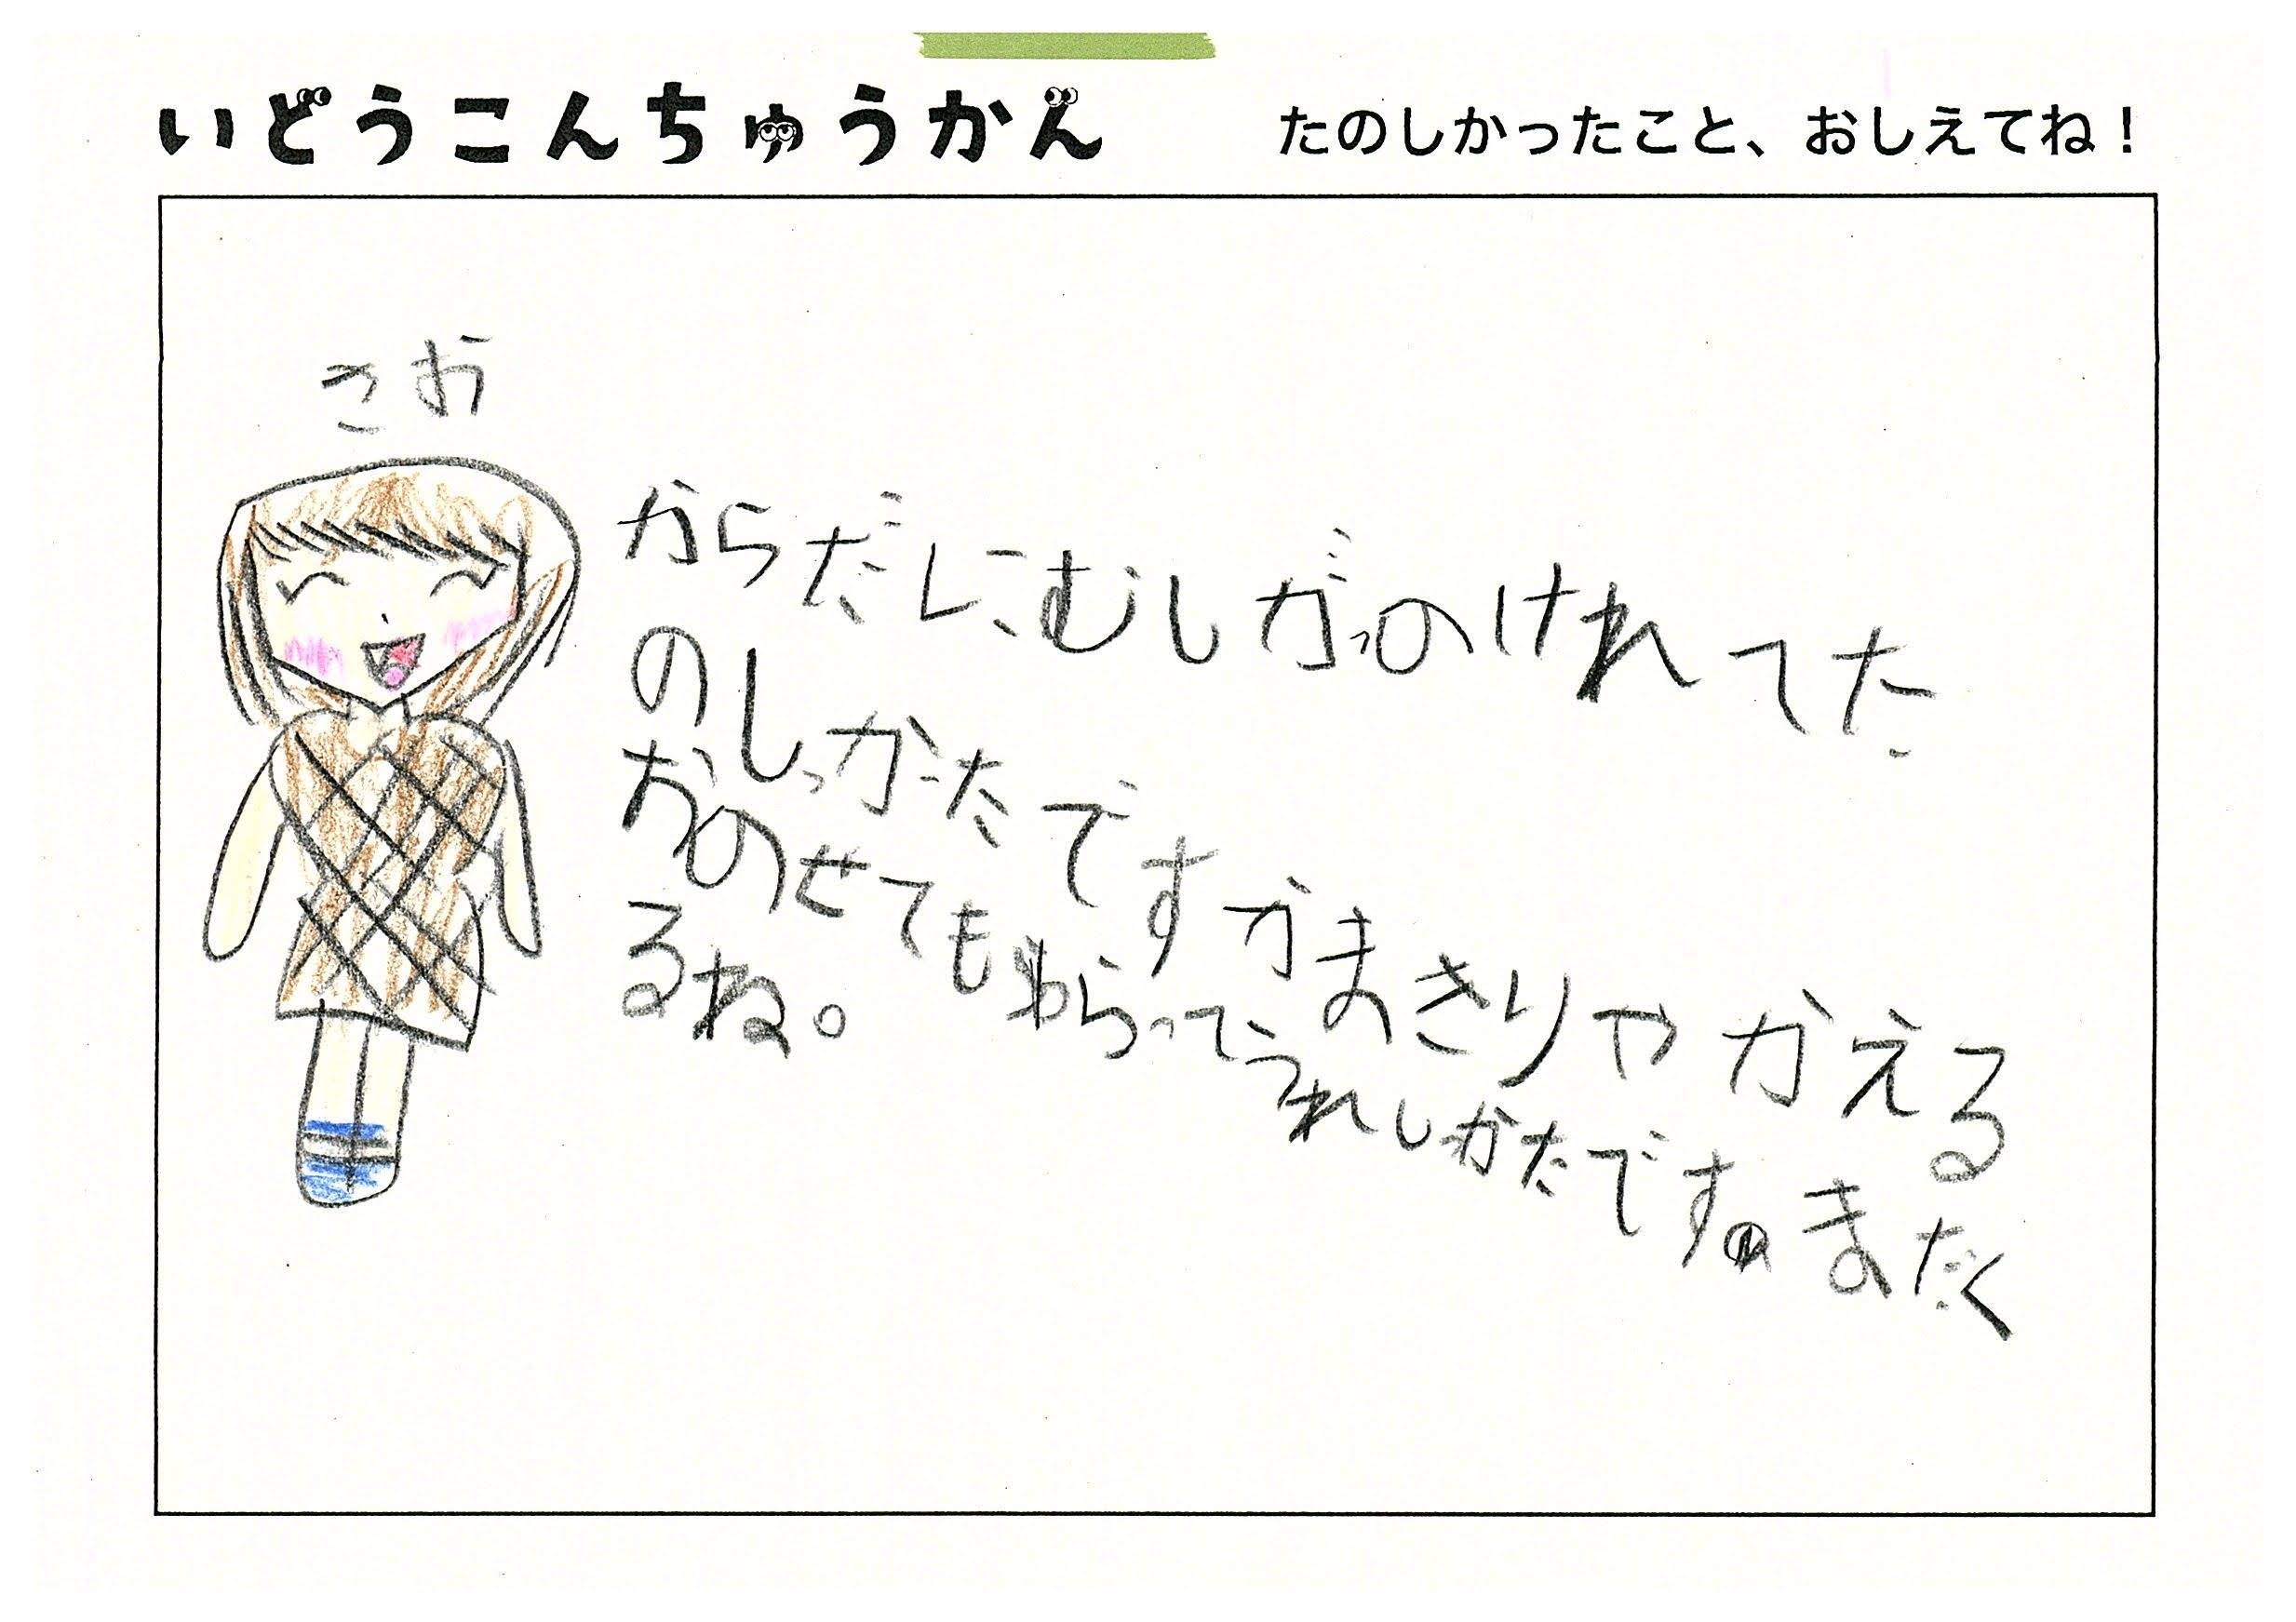 いどうこんちゅうかん
たのしかったこと、おしえてね！
さお
からだにむしがっのけれてた
のしっかたですかまきりやかえる
おのせてもらってうれしっかたです。まだく
るね。